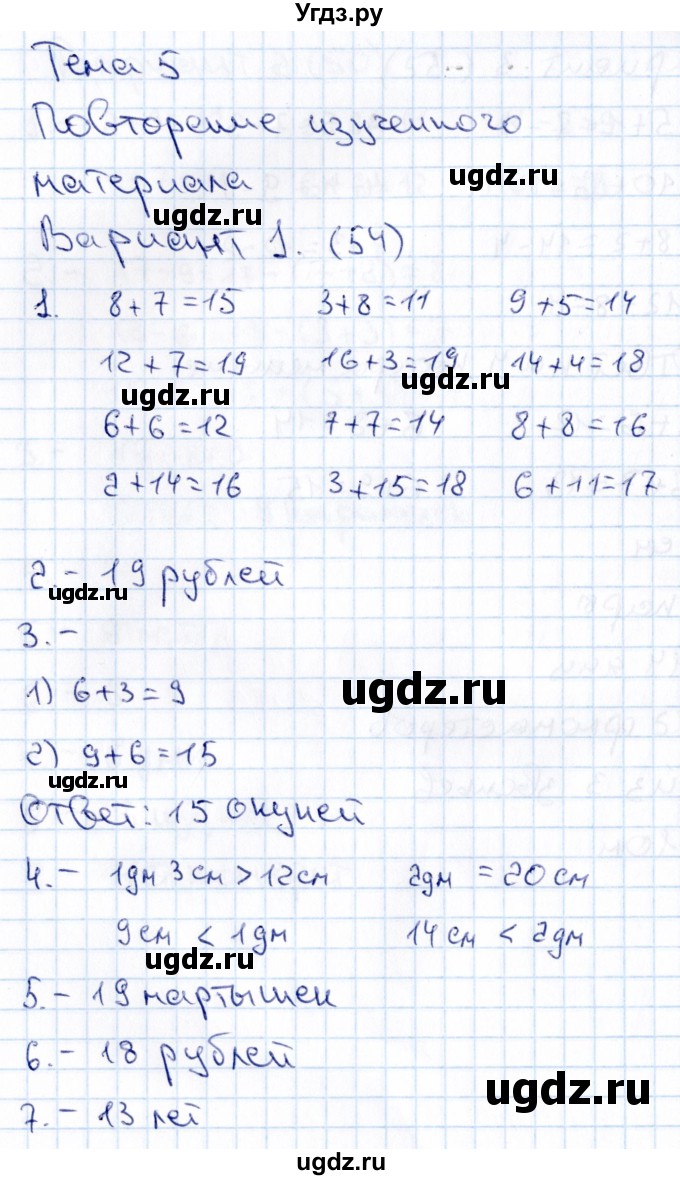 Угдз.ру
Тема 5
Повторение изученного
материала
ugdz.ru
ugdz.ru
Вариант 1. (54)
1. 8+7=15 3+8=11 9+5=14
12+7=19 16+3=19 14+4=18
ugdz.ru ugdz.ru
6+6=12 7+7=14 8+8=16
2+14=16 3+15=18 6+11=17
2.- 19 рублей
ugdz.ru
3.-
1) 6+3=9
ugdz.ru
2) 9+6=15
ugdz.ru
Ответ: 15 окуней
4.- 1дм 3см > 12см 2дм = 20 см
9см < 1дм 14см < 2дм
ugdz.ru
5.- 19 мартышек
6.- 18 рублей
ugdz.ru
7.- 13 лет
ugdz.ru